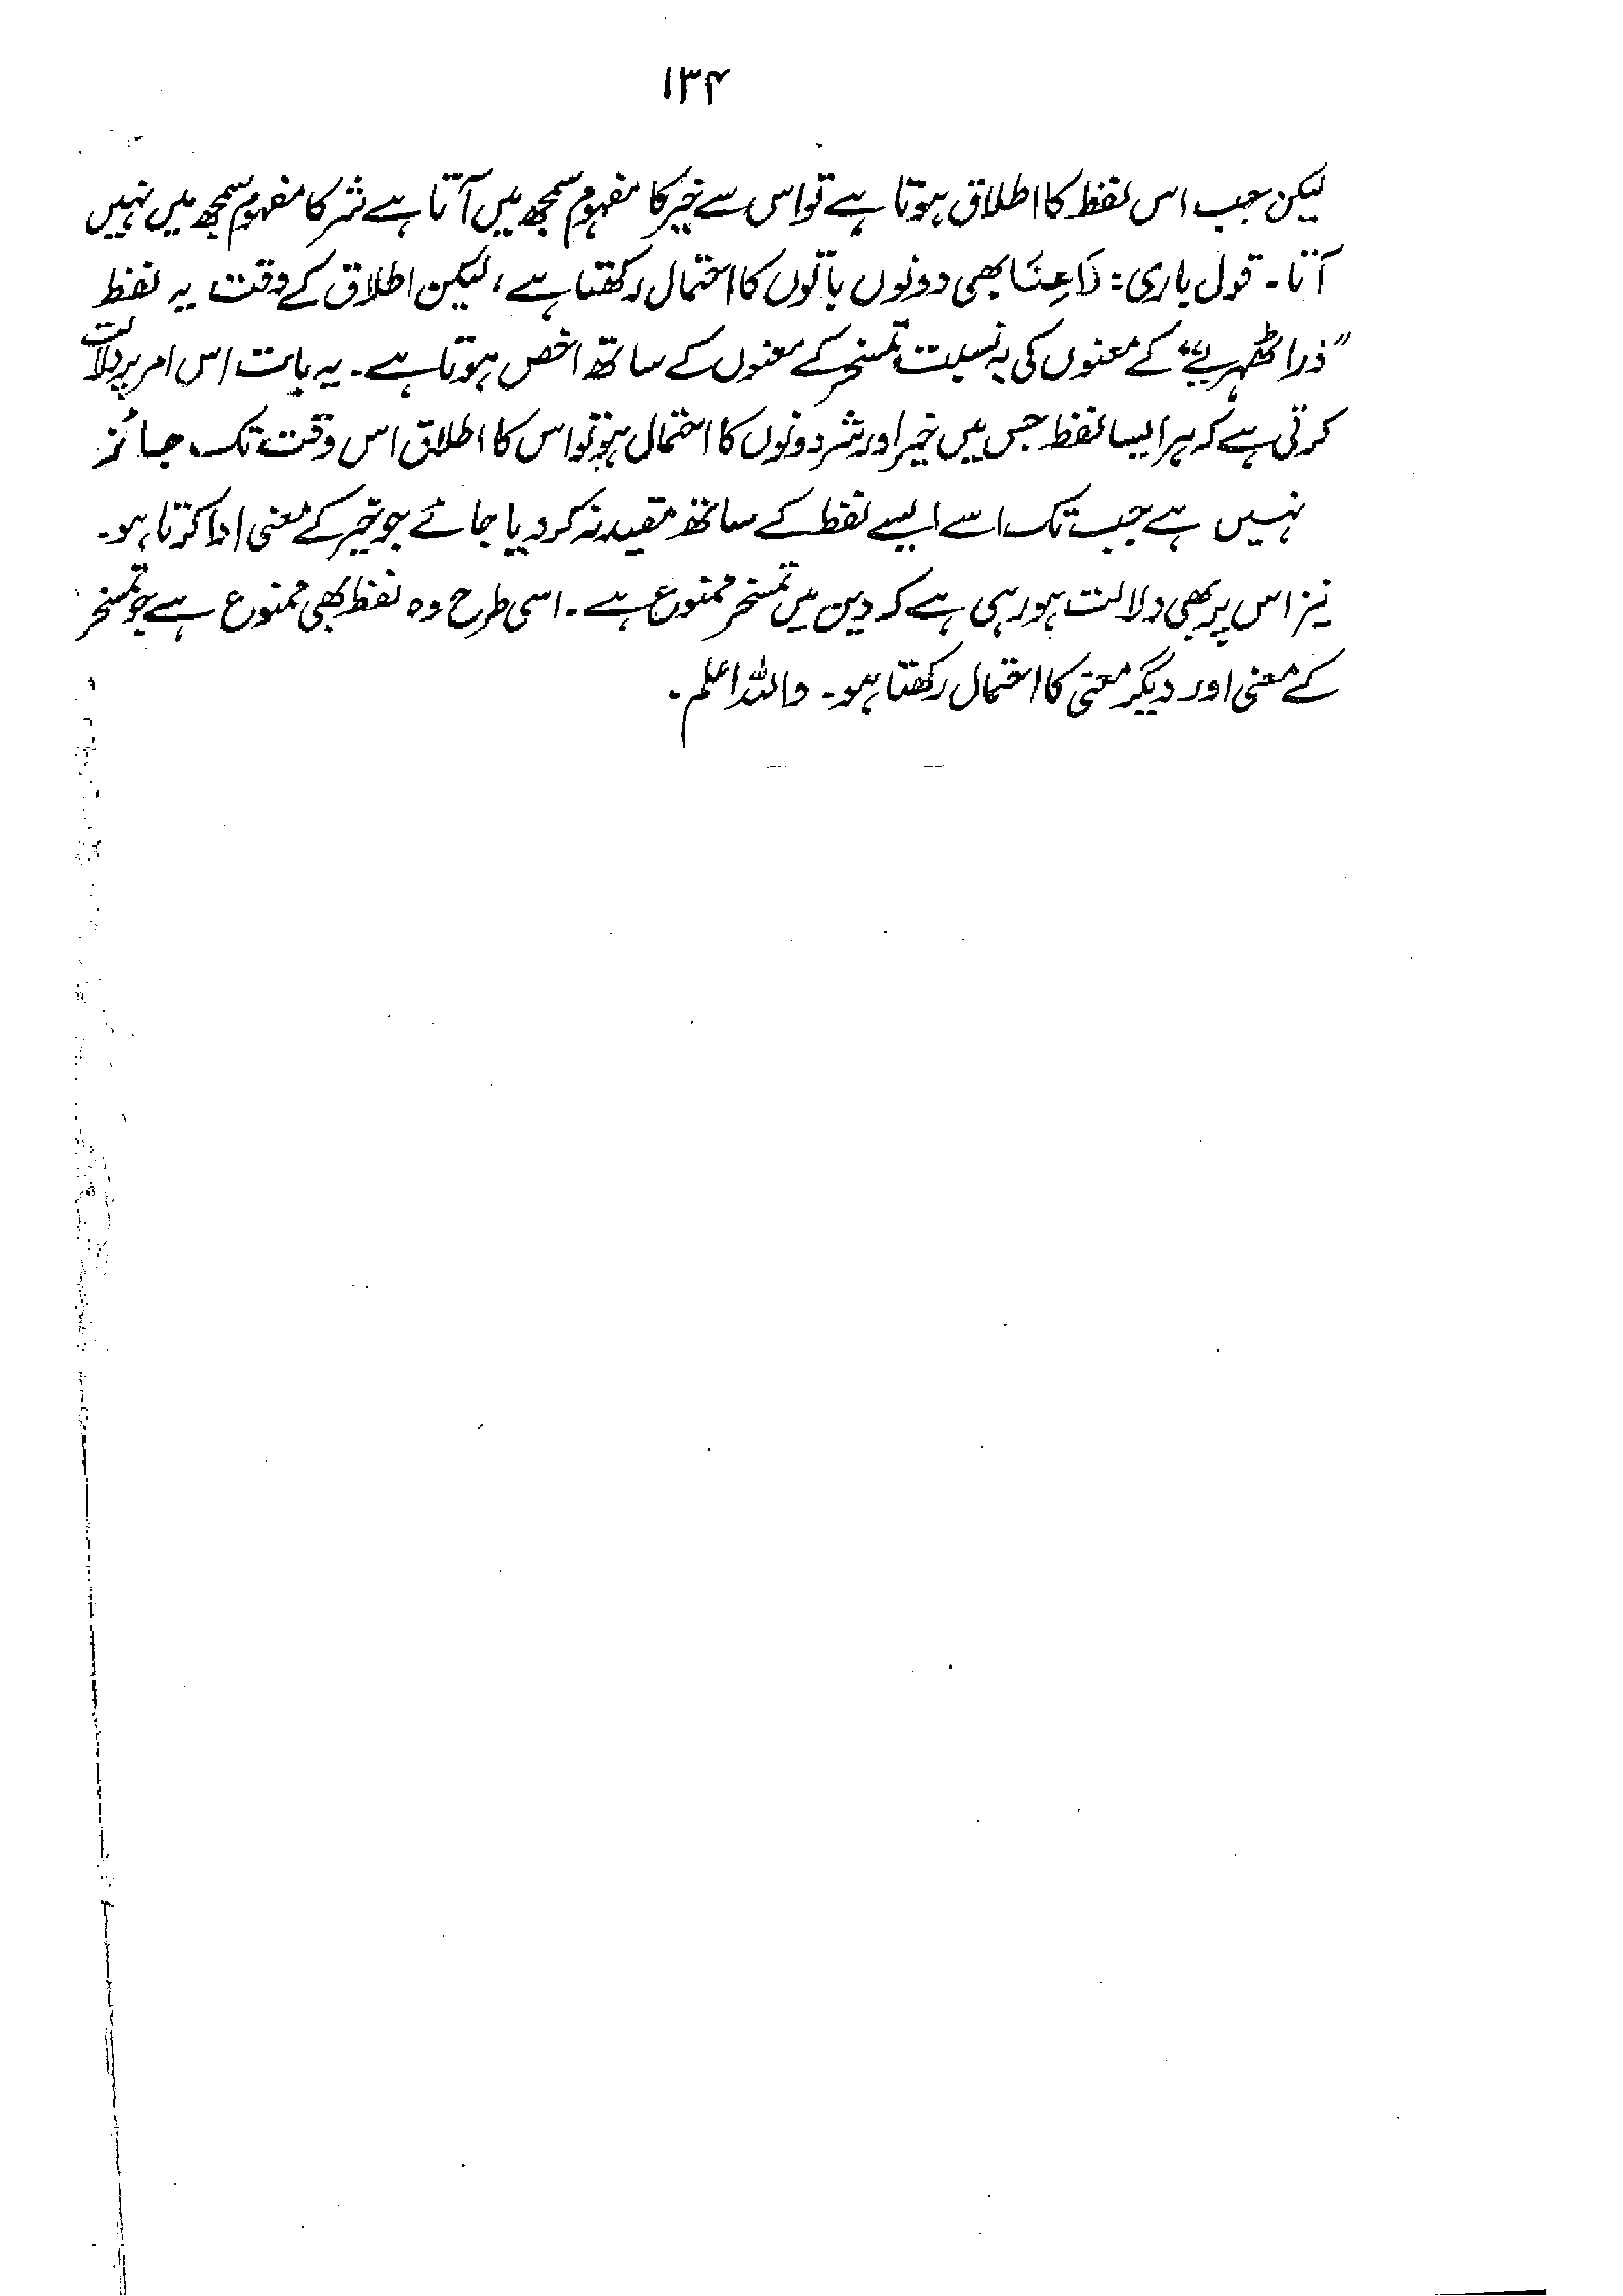 ۱۳۴
لیکن جب اس لفظ کا اطلاق ہوتا ہے تو اس سے خیر کا مفہوم سمجھ میں آتا ہے شر کا مفہوم سمجھ میں نہیں
آتا۔ قول باری: رَاعِنَا بھی دونوں باتوں کا احتمال رکھتا ہے، لیکن اطلاق کے وقت یہ لفظ
”ذرا ٹھہریے“ کے معنوں کی بہ نسبت تمسخر کے معنوں کے ساتھ اخص ہوتا ہے۔ یہ بات اس امر پر دلالت
کرتی ہے کہ ہر ایسا لفظ جس میں خیر اور شر دونوں کا احتمال ہو تو اس کا اطلاق اس وقت تک جائز
نہیں ہے جب تک اسے ایسے لفظ کے ساتھ مقید نہ کر دیا جائے جو خیر کے معنی ادا کرتا ہو۔
نیز اس پر بھی دلالت ہو رہی ہے کہ دین میں تمسخر ممنوع ہے۔ اسی طرح وہ لفظ بھی ممنوع ہے جو تمسخر
کے معنی اور دیگر معنی کا احتمال رکھتا ہو۔ واللہ اعلم۔